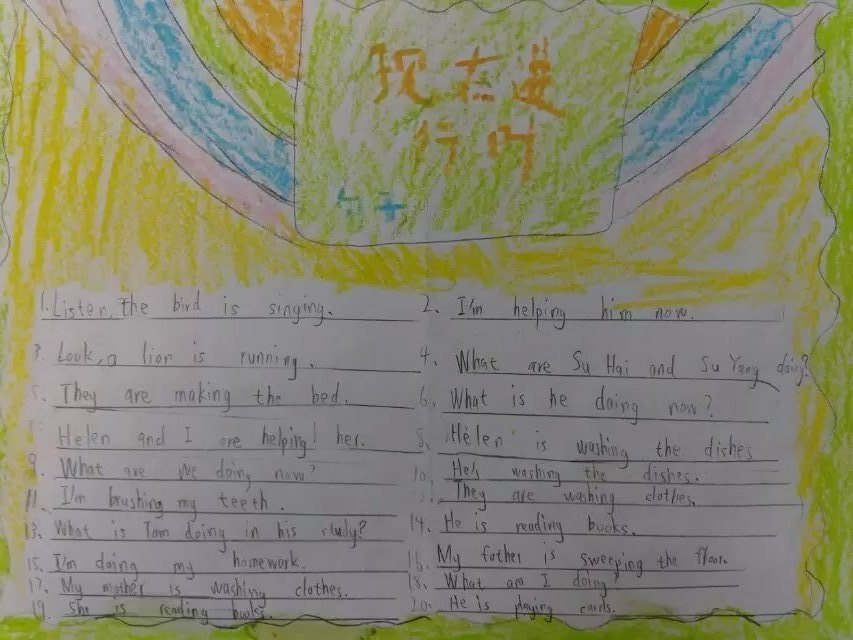 现在进
行时
句子
1. Listen, the bird is singing.
2. I'm helping him now.
3. Look, a lion is running.
4. What are Su Hai and Su Yang doing?
5. They are making the bed.
6. What is he doing now?
7. Helen and I are helping her.
8. Helen is washing the dishes
9. What are we doing now?
10. He's washing the dishes.
11. I'm brushing my teeth.
12. They are washing clothes.
13. What is Tom doing in his study?
14. He is reading books.
15. I'm doing my homework.
16. My father is sweeping the floor.
17. My mother is washing clothes.
18. What am I doing?
19. She is reading books.
20. He is playing cards.